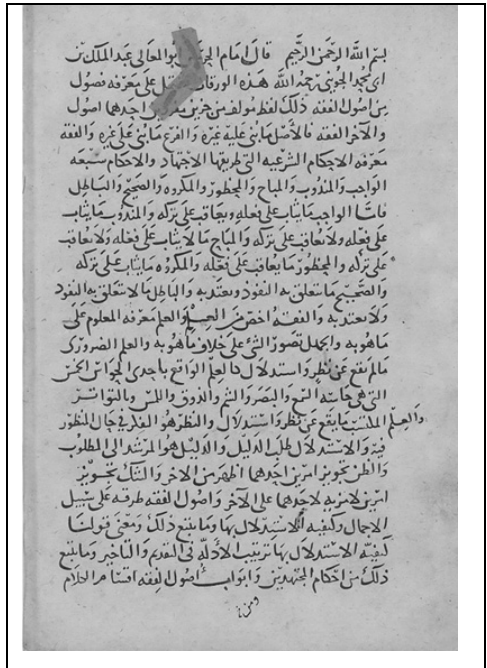 بسم الله الرحمن الرحيم قال امام الحرمين ابو المعالي عبد الملك بن
ابي محمد الجويني رحمه الله هذه الورقات على معرفه فصول
من اصول الفقه ذلك لفظ مولف من جزين احدهما اصول
والآخر الفقه فالأصل ما بني عليه غيره والفرع ما بني على غيره والفقه
معرفه الاحكام الشرعيه التي طريقها الاجتهاد والاحكام سبعه
الواجب والمندوب والمباح والمحظور والمكروه والصحيح والباطل
فامّا الواجب ما يثاب على فعله ويعاقب على تركه والمندوب ما يثاب
على فعله ولا يعاقب على تركه والمباح ما لا يثاب على فعله ولا يعاقب
على تركه والمحظور ما يعاقب على فعله والمكروه ما يثاب على تركه
والصحيح ما يتعلق به النفوذ ويعتد به والباطل ما لا يتعلق به النفوذ
ولا يعتد به والفقه اخص من العلم والعلم معرفه المعلوم على
ما هو به والجهل تصور الشئ على خلاف ما هو به والعلم الضروري
ما لم يقع عن نظر واستدلال كالعلم الواقع باحدى الحواس الخمس
التي هي حاسه السمع والبصر والشم والذوق واللمس وبالتواتر
والعلم المكتسب ما يقع عن نظر واستدلال والنظر هو الفكر في حال المنظور
فيه والاستدلال طلب الدليل والدليل هو المرشد الى المطلوب
والظن تجويز امرين احدهما اظهر من الاخر والشك تجويز
امرين لا مزيه لاحدهما على الآخر واصول الفقه طرقه على سبيل
الاجمال وكيفيه الاستدلال بها وما يتبع ذلك ومعنى قولنا
كيفيّه الاستدلال بها ترتيب الأدله في التقديم والتاخير وما يتبع
ذلك من احكام المجتهدين وابواب اصول الفقه اقسام الكلام